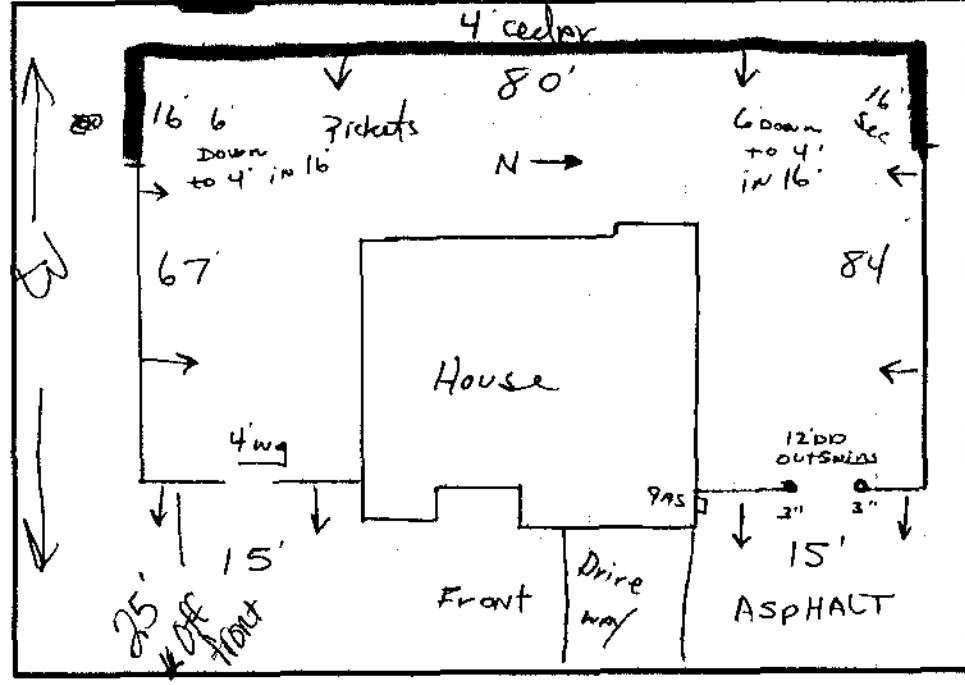 4' cedar
80'
16' 6'
Down
to 4' in 16'
Pickets
N
6 Down
to 4'
in 16'
16'
Sec
67'
84'
House
4' WG
12' DD
OUTSWING
3" 3"
gas
15'
15'
25'
Off
front
Front
Drive
way
ASPHALT